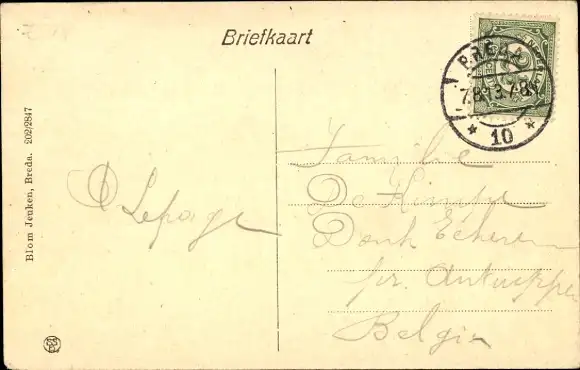 Briefkaart
BREDA
7.8.13.7-8V
10
Familie
De Kimpe
Donk Eckeren
pr. Antwerpen
Belgie
Lepage
Blom Jeuken, Breda. 202/2847